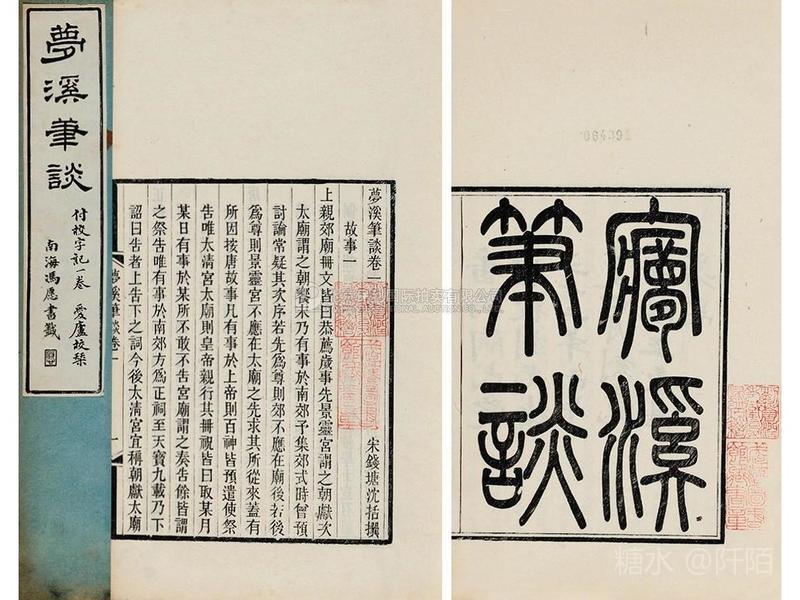 夢溪筆談
付校字記一卷 愛廬校栞
南海馮應書籤
夢溪筆談卷一
宋錢塘沈括撰
故事一
上親郊廟冊文皆曰恭薦歲事先景靈宮謂之朝獻次
太廟謂之朝饗末乃有事於南郊予集郊式時曾預
討論常疑其次序若先爲尊則郊不應在廟後若後
爲尊則景靈宮不應在太廟之先求其所從來蓋有
所因按唐故事凡有事於上帝則百神皆預遣使祭
告唯太清宮太廟則皇帝親行其冊祝皆曰取某月
某日有事於某所不敢不告宮廟謂之奏告餘皆謂
之祭告唯有事於南郊方爲正祠至天寶九載乃下
詔曰告者上告下之詞今後太清宮宜稱朝獻太廟
夢溪筆談卷一
一
064391
寱溪
筆談
糖水 @阡陌